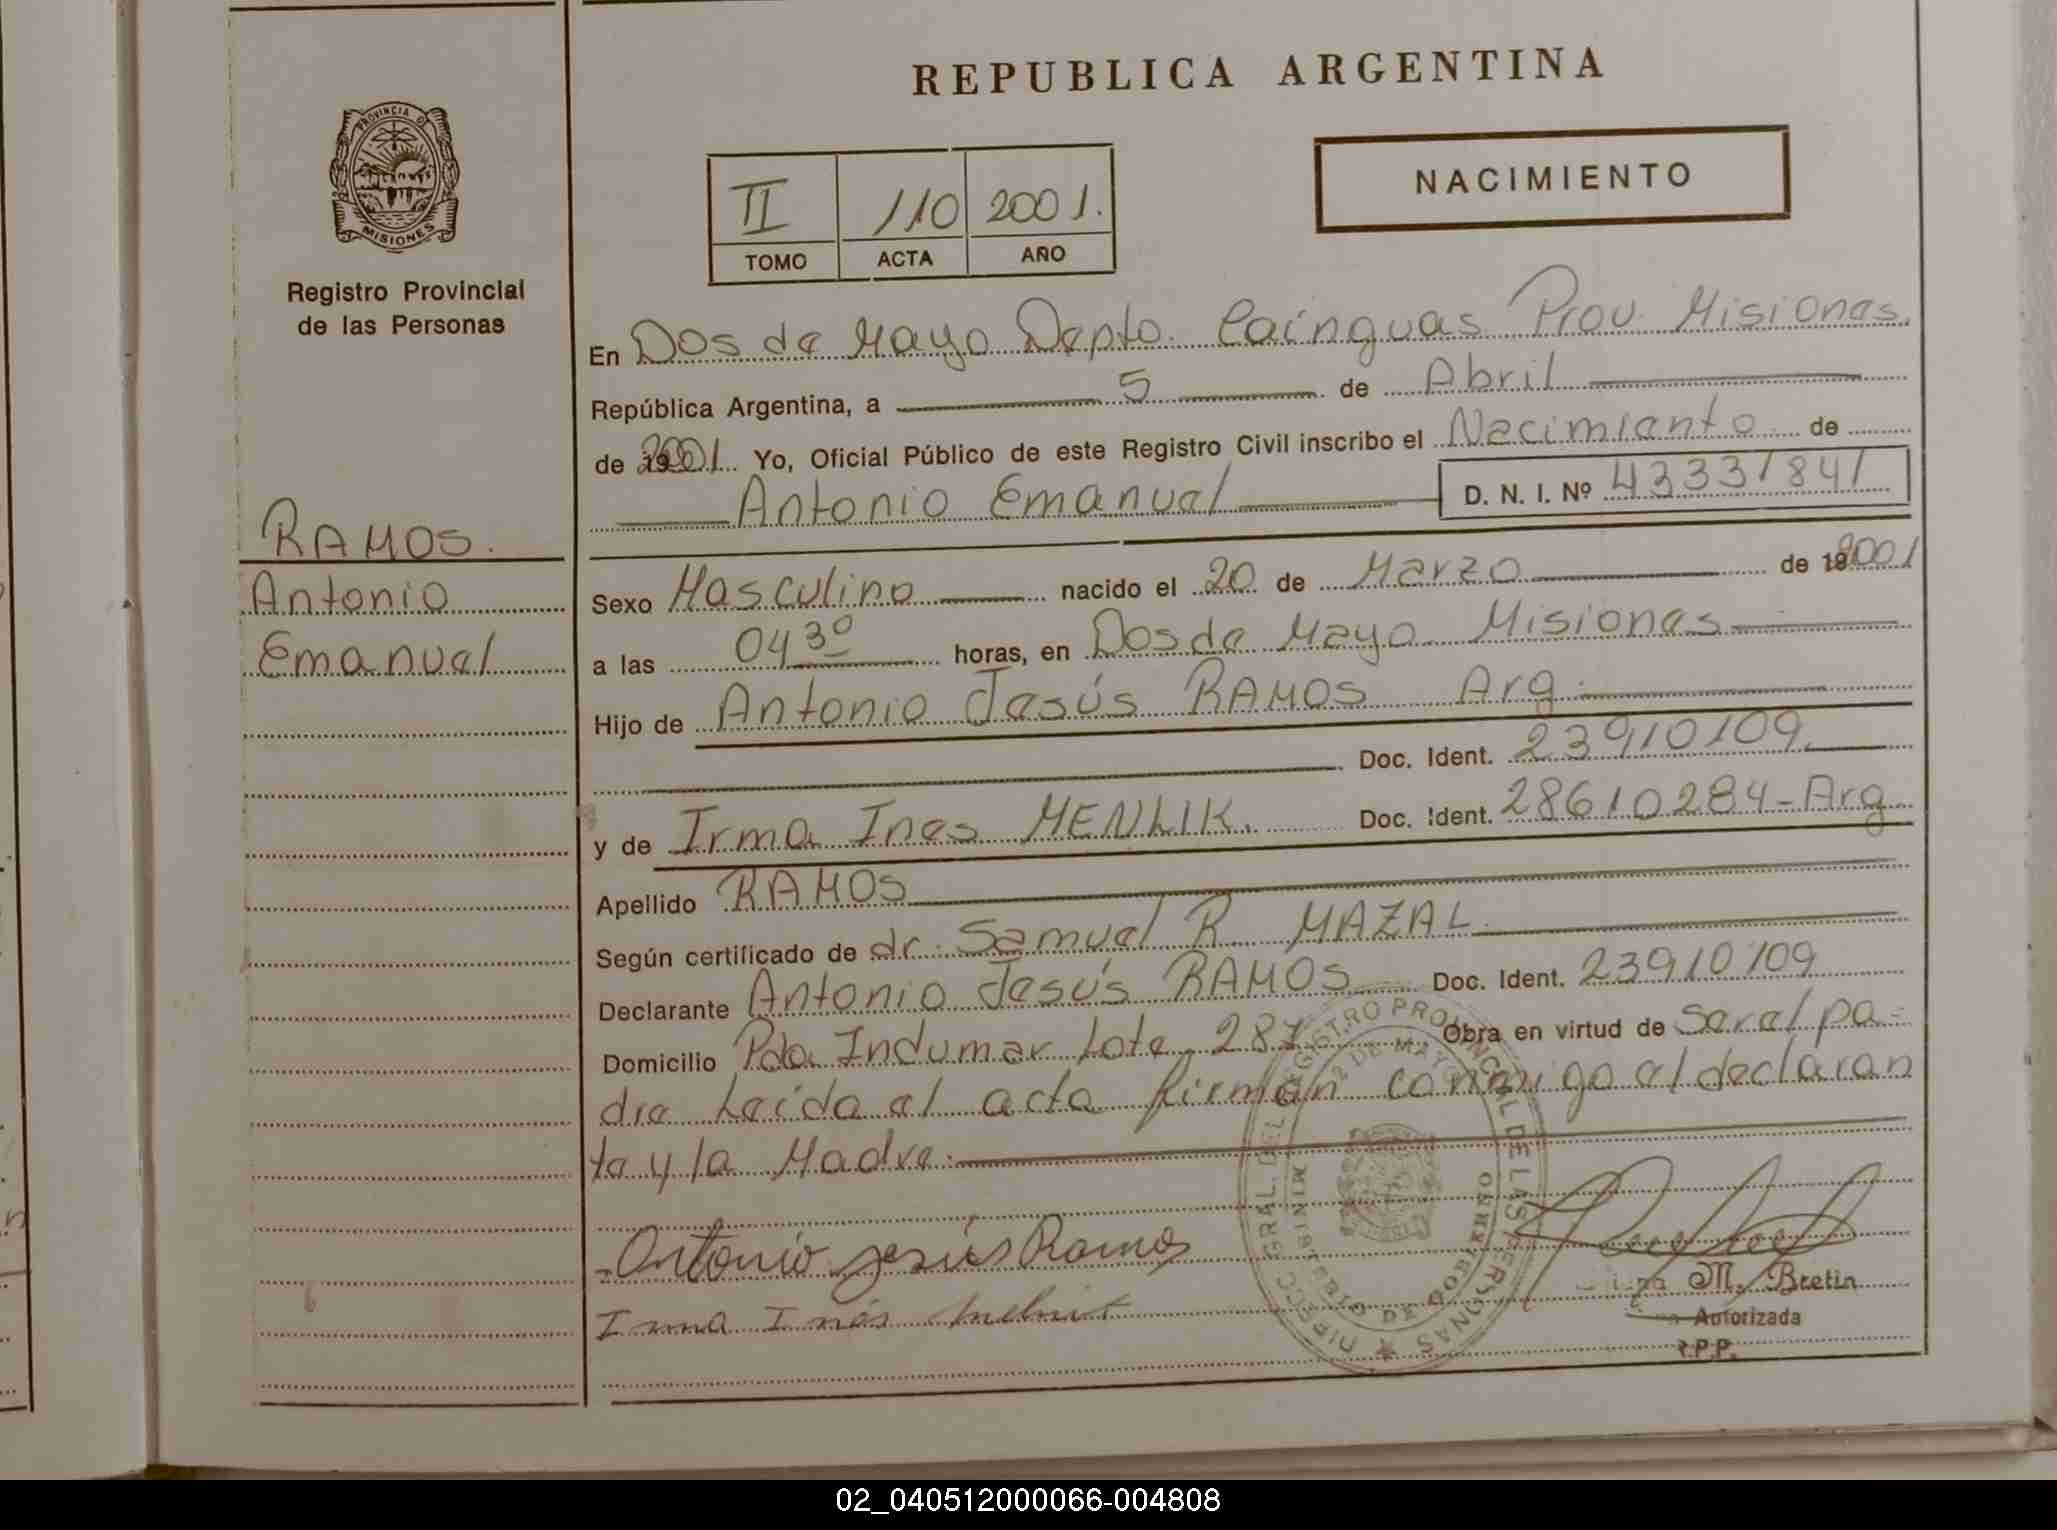 REPUBLICA ARGENTINA
PROVINCIA D
MISIONES
Registro Provincial
de las Personas
II 110 2001.
TOMO ACTA AÑO
NACIMIENTO
RAMOS.
Antonio
Emanuel
En Dos de Mayo Depto. Cainguas Prov. Misiones.
República Argentina, a 5 de Abril
de 2001 Yo, Oficial Público de este Registro Civil inscribo el Nacimiento de
Antonio Emanuel D. N. I. Nº 43331841
Sexo Masculino nacido el 20 de Marzo de 2001
a las 04 30 horas, en Dos de Mayo Misiones
Hijo de Antonio Jesús RAMOS Arg.
Doc. Ident. 23910109.
y de Irma Ines MENLIK. Doc. Ident. 28610284-Arg
Apellido RAMOS
Según certificado de dr. Samuel R MAZAL
Declarante Antonio Jesús RAMOS Doc. Ident. 23910109
Domicilio Pdo. Indumar Lote 287 Obra en virtud de Ser el pa=
dre Leida el acta firman conmigo el declaran
te y la Madre.
Antonio Jesús Ramos
Irma Inés
M. Bretin
Autorizada
R.P.P.
DIRECC. GRAL. DEL REGISTRO PROVINCIAL DE LAS PERSONAS
2 DE MAYO
MINISTERIO DE GOBIERNO
02_040512000066-004808